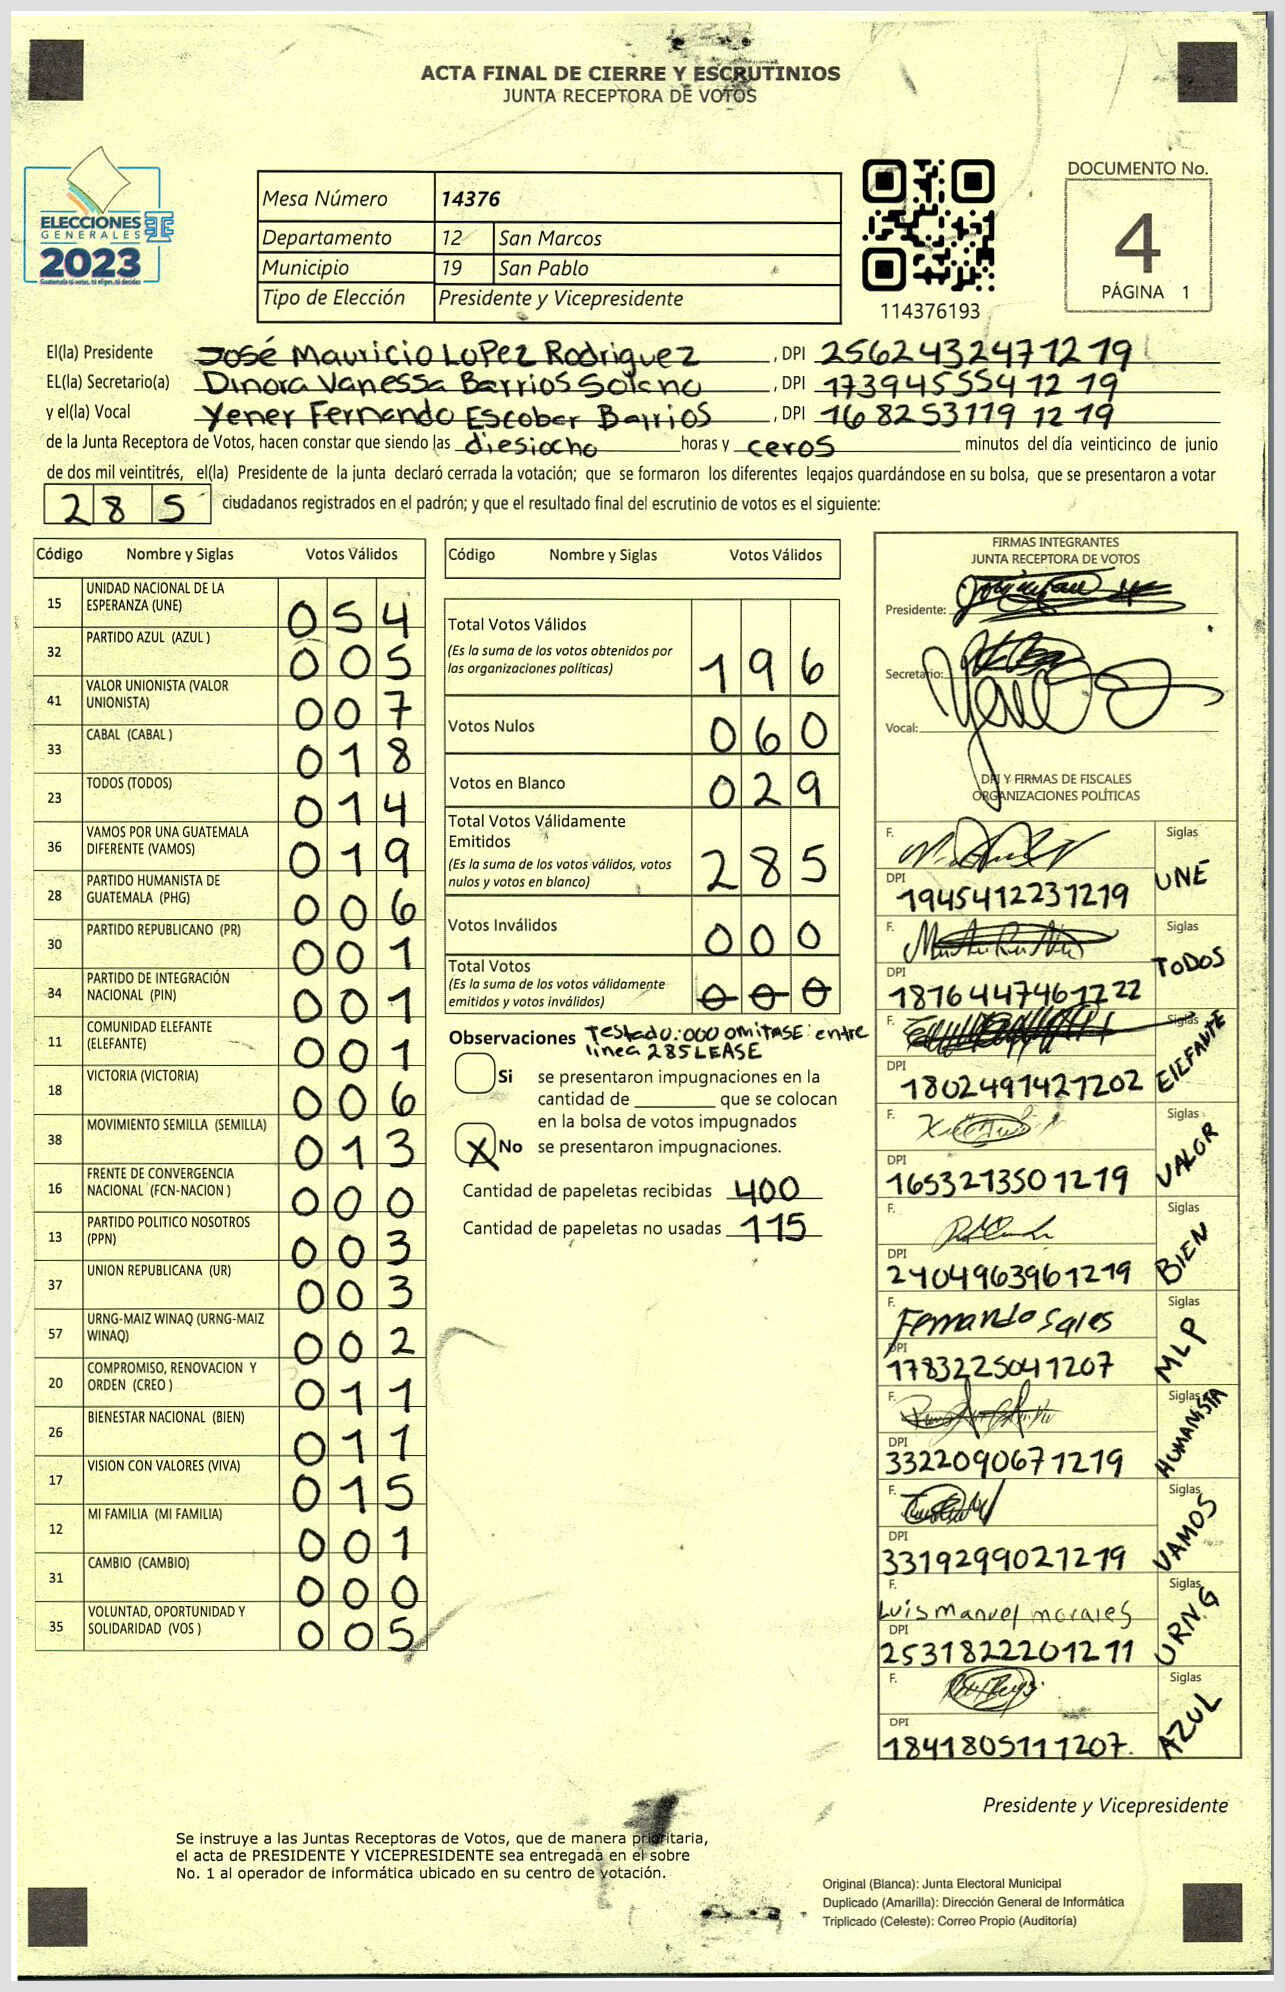 ACTA FINAL DE CIERRE Y ESCRUTINIOS
JUNTA RECEPTORA DE VOTOS
ELECCIONES
GENERALES
2023
Guatemala tú votas, tú eliges, tú decides
Mesa Número 14376
Departamento 12 San Marcos
Municipio 19 San Pablo
Tipo de Elección Presidente y Vicepresidente
114376193
DOCUMENTO No.
4
PÁGINA 1
El(la) Presidente José Mauricio LoPez Rodriguez , DPI 2562432471219
EL(la) Secretario(a) Dinora Vanessa Barrios Solano , DPI 1739455541219
y el(la) Vocal Yener Fernando Escobar Barrios , DPI 1682531191219
de la Junta Receptora de Votos, hacen constar que siendo las diesiocho horas y ceros minutos del día veinticinco de junio
de dos mil veintitrés, el(la) Presidente de la junta declaró cerrada la votación; que se formaron los diferentes legajos guardándose en su bolsa, que se presentaron a votar
285 ciudadanos registrados en el padrón; y que el resultado final del escrutinio de votos es el siguiente:
Código Nombre y Siglas Votos Válidos
15 UNIDAD NACIONAL DE LA ESPERANZA (UNE) 054
32 PARTIDO AZUL (AZUL ) 005
41 VALOR UNIONISTA (VALOR UNIONISTA) 007
33 CABAL (CABAL ) 018
23 TODOS (TODOS) 014
36 VAMOS POR UNA GUATEMALA DIFERENTE (VAMOS) 019
28 PARTIDO HUMANISTA DE GUATEMALA (PHG) 006
30 PARTIDO REPUBLICANO (PR) 001
34 PARTIDO DE INTEGRACIÓN NACIONAL (PIN) 001
11 COMUNIDAD ELEFANTE (ELEFANTE) 001
18 VICTORIA (VICTORIA) 006
38 MOVIMIENTO SEMILLA (SEMILLA) 013
16 FRENTE DE CONVERGENCIA NACIONAL (FCN-NACION ) 000
13 PARTIDO POLITICO NOSOTROS (PPN) 003
37 UNION REPUBLICANA (UR) 003
57 URNG-MAIZ WINAQ (URNG-MAIZ WINAQ) 002
20 COMPROMISO, RENOVACION Y ORDEN (CREO ) 011
26 BIENESTAR NACIONAL (BIEN) 011
17 VISION CON VALORES (VIVA) 015
12 MI FAMILIA (MI FAMILIA) 001
31 CAMBIO (CAMBIO) 000
35 VOLUNTAD, OPORTUNIDAD Y SOLIDARIDAD (VOS ) 005
Código Nombre y Siglas Votos Válidos
Total Votos Válidos
(Es la suma de los votos obtenidos por las organizaciones políticas) 196
Votos Nulos 060
Votos en Blanco 029
Total Votos Válidamente Emitidos
(Es la suma de los votos válidos, votos nulos y votos en blanco) 285
Votos Inválidos 000
Total Votos
(Es la suma de los votos válidamente emitidos y votos inválidos) 000
Observaciones Testado:000 omitase: entre
linea 285 LEASE
Si se presentaron impugnaciones en la
cantidad de que se colocan
en la bolsa de votos impugnados
X No se presentaron impugnaciones.
Cantidad de papeletas recibidas 400
Cantidad de papeletas no usadas 115
FIRMAS INTEGRANTES
JUNTA RECEPTORA DE VOTOS
Presidente:
Secretario:
Vocal:
DPI Y FIRMAS DE FISCALES
ORGANIZACIONES POLÍTICAS
F. Siglas
DPI 1945412231219 UNE
F. Siglas
DPI 1876447461222 TODOS
F. Siglas
DPI 1802491421202 ElEFANTE
F. Siglas
DPI 1653213501219 VALOR
F. Siglas
DPI 2404963961219 BIEN
F. Fernando Sales Siglas
DPI 1783225041207 MLP
F. Siglas
DPI 3322090671219 HUMANISTA
F. Siglas
DPI 3319299021219 VAMOS
F. Luis manuel morales Siglas
DPI 2531822201211 URNG
F. Siglas
DPI 1841805111207. AZUL
Presidente y Vicepresidente
Se instruye a las Juntas Receptoras de Votos, que de manera prioritaria,
el acta de PRESIDENTE Y VICEPRESIDENTE sea entregada en el sobre
No. 1 al operador de informática ubicado en su centro de votación.
Original (Blanca): Junta Electoral Municipal
Duplicado (Amarilla): Dirección General de Informática
Triplicado (Celeste): Correo Propio (Auditoría)